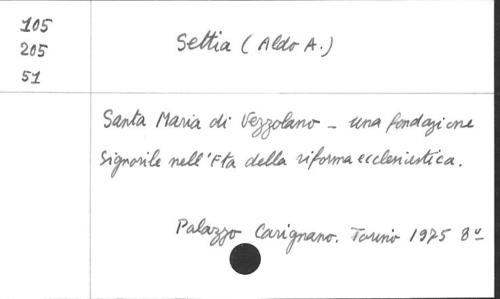 105
205
51
Settia (Aldo A.)
Santa Maria di Vezzolano - una fondazione
signorile nell'Eta della riforma ecclesiastica.
Palazzo Carignano. Torino 1975 8º